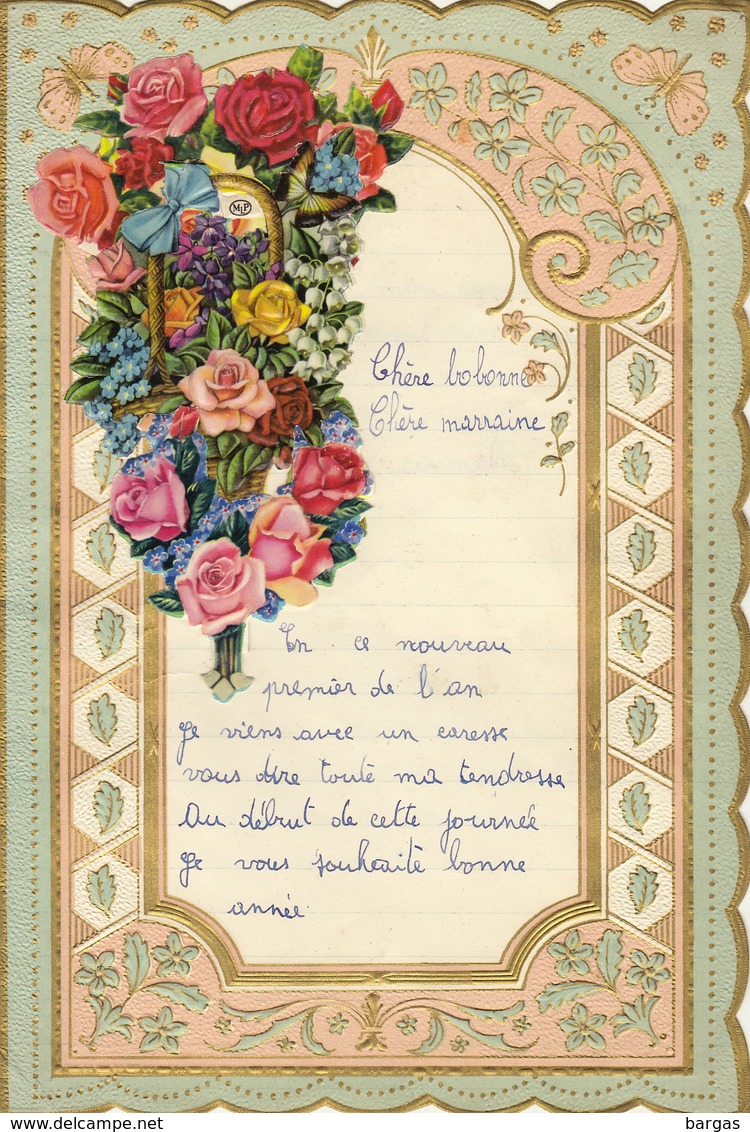 MLP
Chère bobonne
Chère marraine
En ce nouveau
premier de l'an
Je viens avec un caresse
vous dire toute ma tendresse
Au début de cette journée
Je vous souhaite bonne
année.
delcampe.net
bargas